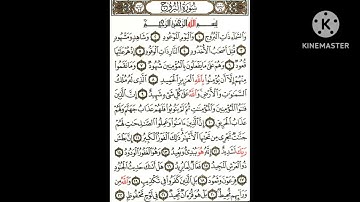 سُورَةُ الْبُرُوجِ
بِسْمِ اللَّهِ الرَّحْمَٰنِ الرَّحِيمِ
وَالسَّمَاءِ ذَاتِ الْبُرُوجِ ۝ وَالْيَوْمِ الْمَوْعُودِ ۝ وَشَاهِدٍ وَمَشْهُودٍ
۝ قُتِلَ أَصْحَٰبُ الْأُخْدُودِ ۝ النَّارِ ذَاتِ الْوَقُودِ ۝ إِذْ هُمْ عَلَيْهَا
قُعُودٌ ۝ وَهُمْ عَلَىٰ مَا يَفْعَلُونَ بِالْمُؤْمِنِينَ شُهُودٌ ۝ وَمَا نَقَمُوا
مِنْهُمْ إِلَّا أَن يُؤْمِنُوا بِاللَّهِ الْعَزِيزِ الْحَمِيدِ ۝ الَّذِي لَهُ مُلْكُ
السَّمَٰوَٰتِ وَالْأَرْضِ وَاللَّهُ عَلَىٰ كُلِّ شَيْءٍ شَهِيدٌ ۝ إِنَّ الَّذِينَ
فَتَنُوا الْمُؤْمِنِينَ وَالْمُؤْمِنَٰتِ ثُمَّ لَمْ يَتُوبُوا فَلَهُمْ عَذَابُ جَهَنَّمَ وَلَهُمْ
عَذَابُ الْحَرِيقِ ۝ إِنَّ الَّذِينَ ءَامَنُوا وَعَمِلُوا الصَّٰلِحَٰتِ لَهُمْ
جَنَّٰتٌ تَجْرِي مِن تَحْتِهَا الْأَنْهَٰرُ ذَٰلِكَ الْفَوْزُ الْكَبِيرُ ۝ إِنَّ بَطْشَ
رَبِّكَ لَشَدِيدٌ ۝ إِنَّهُ هُوَ يُبْدِئُ وَيُعِيدُ ۝ وَهُوَ الْغَفُورُ الْوَدُودُ ۝
ذُو الْعَرْشِ الْمَجِيدُ ۝ فَعَّالٌ لِّمَا يُرِيدُ ۝ هَلْ أَتَىٰكَ حَدِيثُ الْجُنُودِ ۝
فِرْعَوْنَ وَثَمُودَ ۝ بَلِ الَّذِينَ كَفَرُوا فِي تَكْذِيبٍ ۝ وَاللَّهُ مِن
وَرَائِهِم مُّحِيطٌ ۝ بَلْ هُوَ قُرْءَانٌ مَّجِيدٌ ۝ فِي لَوْحٍ مَّحْفُوظٍ ۝
MADE WITH
KINEMASTER